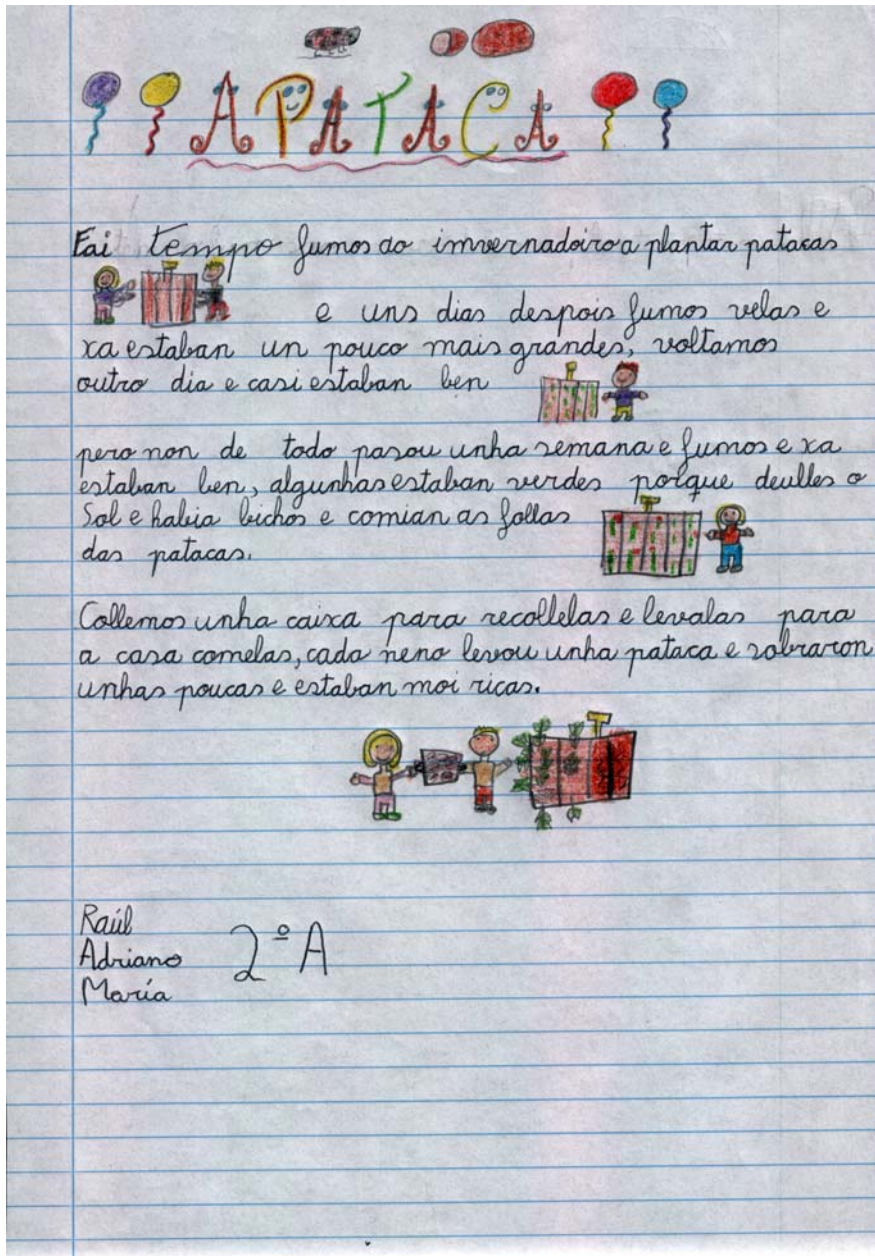 A PATACA
Fai tempo fumos ao invernadoiro a plantar patacas
e uns dias despois fumos velas e
xa estaban un pouco mais grandes, voltamos
outro dia e casi estaban ben
pero non de todo pasou unha semana e fumos e xa
estaban ben, algunhas estaban verdes porque deulles o
Sol e habia bichos e comian as follas
das patacas.
Collemos unha caixa para recollelas e levalas para
a casa comelas, cada neno levou unha pataca e sobraron
unhas poucas e estaban moi ricas.
Raúl
Adriano 2º A
María